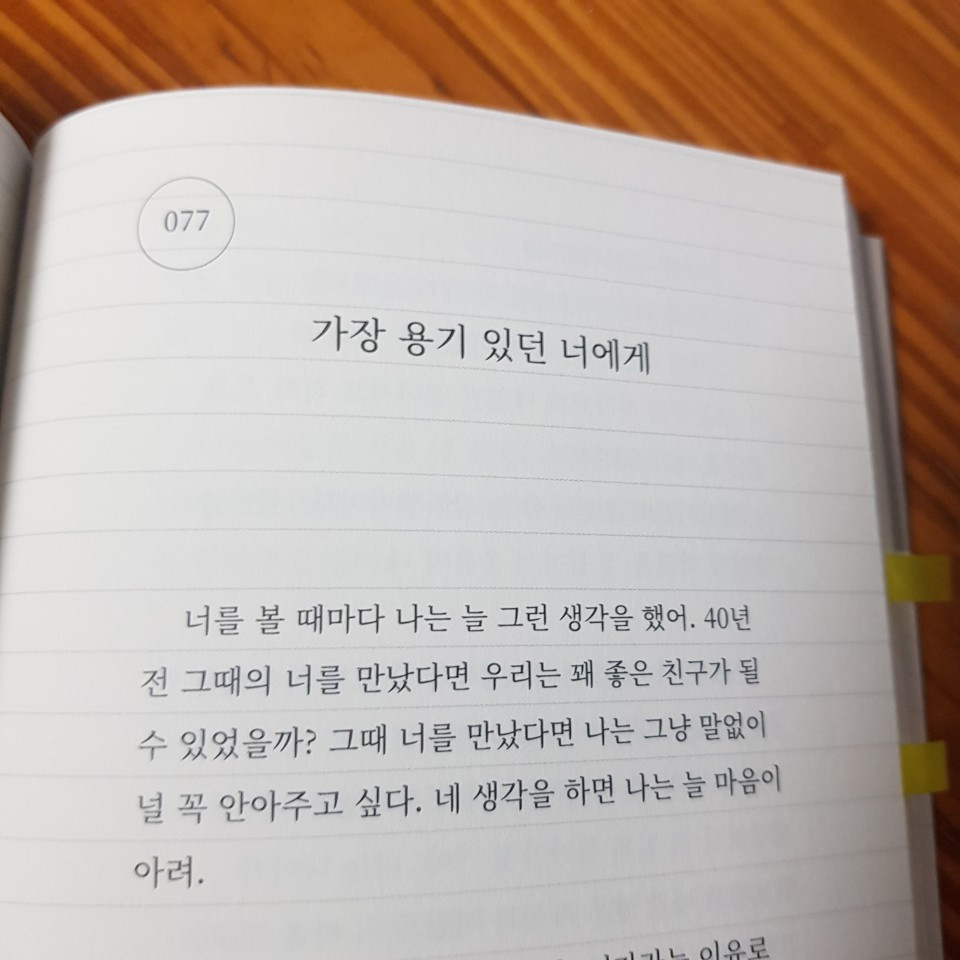 077
가장 용기 있던 너에게
너를 볼 때마다 나는 늘 그런 생각을 했어. 40년
전 그때의 너를 만났다면 우리는 꽤 좋은 친구가 될
수 있었을까? 그때 너를 만났다면 나는 그냥 말없이
널 꼭 안아주고 싶다. 네 생각을 하면 나는 늘 마음이
아려.
이유로